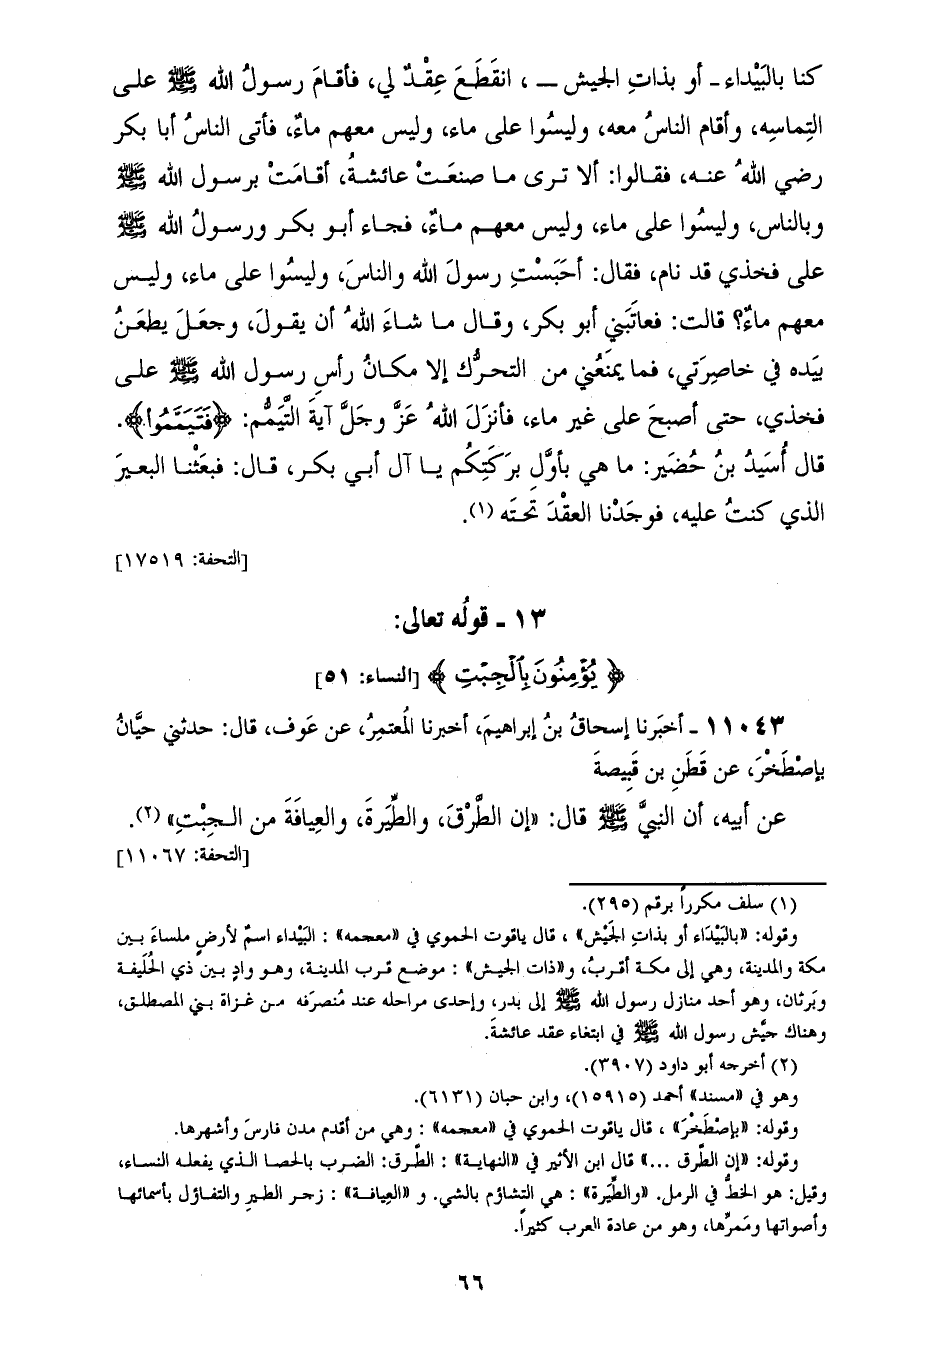 كنا بالبَيْداء ـ أو بذاتِ الجيش ــ ، انقَطَعَ عِقْدٌ لي، فأقامَ رسولُ الله ﷺ على
التِماسِه، وأقام الناسُ معه، وليسُوا على ماء، وليس معهم ماءٌ، فأتى الناسُ أبا بكر
رضي اللهُ عنه، فقالوا: ألا ترى ما صنعَتْ عائشةُ، أقامَتْ برسول الله ﷺ
وبالناس، وليسُوا على ماء، وليس معهم ماءٌ، فجاء أبو بكر ورسولُ الله ﷺ
على فخذي قد نام، فقال: أحَبَسْتِ رسولَ الله والناسَ، وليسُوا على ماء، وليس
معهم ماءٌ؟ قالت: فعاتَبَني أبو بكر، وقال ما شاءَ اللهُ أن يقولَ، وجعَلَ يطعَنُ
بيَده في خاصِرَتي، فما يمنَعُني من التحرُّك إلا مكانُ رأسِ رسول الله ﷺ على
فخذي، حتى أصبحَ على غير ماء، فأنزلَ اللهُ عزَّ وجلَّ آيةَ التَّيَمُّم: ﴿فَتَيَمَّمُوا﴾.
قال أُسَيدُ بنُ حُضَير: ما هي بأوَّلِ بَركَتِكُم يا آل أبي بكر، قال: فبعَثْنا البعيرَ
الذي كنتُ عليه، فوجَدْنا العقْدَ تحتَه (١).
[التحفة: ١٧٥١٩]
١٣ ـ قولُه تعالى:
﴿ يُؤْمِنُونَ بِٱلْجِبْتِ ﴾ [النساء: ٥١]
١١٠٤٣ ـ أخبَرنا إسحاقُ بنُ إبراهيمَ، أخبرنا المُعتمِرُ، عن عَوف، قال: حدثني حيَّانُ
بإصْطَخْرَ، عن قَطَنِ بن قَبِيصةَ
عن أبيه، أن النبيَّ ﷺ قال: «إن الطَّرْقَ، والطِّيَرةَ، والعِيافَةَ من الـجِبْتِ» (٢).
[التحفة: ١١٠٦٧]
(١) سلف مكرراً برقم (٢٩٥).
وقوله: «بالبَيْدَاء أو بذاتِ الجَيْش» ، قال ياقوت الحموي في «معجمه» : البَيْداء اسمٌ لأرضٍ ملساءَ بين
مكة والمدينة، وهي إلى مكة أقربُ، و«ذات الجيش» : موضع قرب المدينة، وهو وادٍ بين ذي الحُلَيفة
وبَرثان، وهو أحد منازل رسول الله ﷺ إلى بدر، وإحدى مراحله عند مُنصرَفه من غزاة بني المصطلق،
وهناك جيَّش رسول الله ﷺ في ابتغاء عقد عائشةَ.
(٢) أخرجه أبو داود (٣٩٠٧).
وهو في «مسند» أحمد (١٥٩١٥)، وابن حبان (٦١٣١).
وقوله: «بإصْطَخْرَ» ، قال ياقوت الحموي في «معجمه» : وهي من أقدم مدن فارسَ وأشهرها.
وقوله: «إن الطَّرق ...» قال ابن الأثير في «النهاية» : الطَّرق: الضرب بالحصا الذي يفعله النساء،
وقيل: هو الخطُّ في الرمل. «والطِّيَرة» : هي التشاؤم بالشي. و «العِيافة» : زجر الطير والتفاؤل بأسمائها
وأصواتها ومَمرِّها، وهو من عادة العرب كثيراً.
٦٦